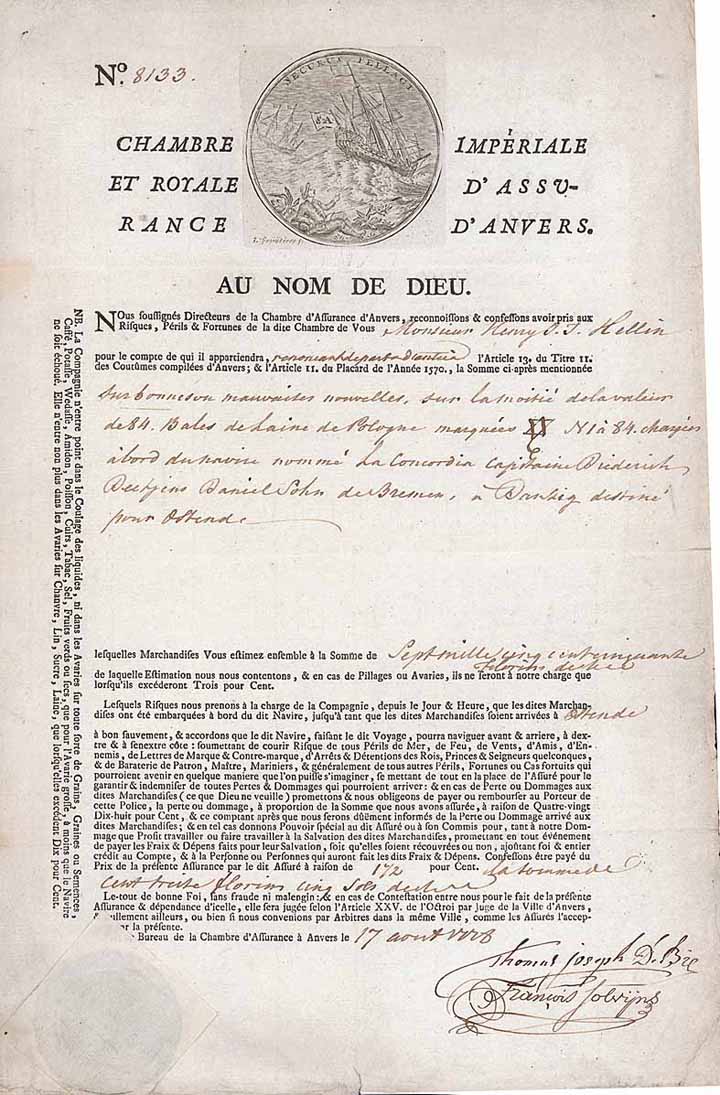 Nº. 8133.
SECURUS PELLAGI
CHAMBRE IMPÉRIALE
ET ROYALE D'ASSU-
RANCE D'ANVERS.
AU NOM DE DIEU.
NOus soussignés Directeurs de la Chambre d'Assurance d'Anvers, reconnoissons & confessons avoir pris aux
Risques, Périls & Fortunes de la dite Chambre de Vous Monsieur Henry J. Hellin
pour le compte de qui il appartiendra, renonceant de part & d'autre à l'Article 13. du Titre 11.
des Coutûmes compilées d'Anvers; & l'Article 11. du Placard de l'Année 1570., la Somme ci-après mentionée
sur bonnes ou mauvaises nouvelles, sur la moitié de la valeur
de 84. Bales de Laine de Pologne marquées N 1 à 84. chargées
à bord du navire nommé La Concordia Capitaine Diederich
Daniel Sohn de Bremen, à Dantzig destiné
pour Ostende
lesquelles Marchandises Vous estimez ensemble à la Somme de Sept mille cinq cent cinquante
florins de
de laquelle Estimation nous nous contentons, & en cas de Pillages ou Avaries, ils ne seront à notre charge que
lorsqu'ils excéderont Trois pour Cent.
Lesquels Risques nous prenons à la charge de la Compagnie, depuis le Jour & Heure, que les dites Marchan-
dises ont été embarquées à bord du dit Navire, jusqu'à tant que les dites Marchandises soient arrivées à Ostende
à bon sauvement, & accordons que le dit Navire, faisant le dit Voyage, pourra naviguer avant & arriere, à dex-
tre & à senextre côte: soumettant de courir Risque de tous Périls de Mer, de Feu, de Vents, d'Amis, d'En-
nemis, de Lettres de Marque & Contre-marque, d'Arrêts & Détentions des Rois, Princes & Seigneurs quelconques,
& de Baraterie de Patron, Maître, Mariniers, & généralement de tous autres Périls, Fortunes ou Cas fortuits qui
pourroient avenir en quelque maniere que l'on puisse s'imaginer, se mettant de tout en la place de l'Assuré pour le
garantir & indemniser de toutes Pertes & Dommages qui pourroient arriver: & en cas de Perte ou Dommages aux
dites Marchandises (ce que Dieu ne veuille) promettons & nous obligeons de payer ou rembourser au Porteur de
cette Police, la perte ou dommage, à proportion de la Somme que nous avons assurée, à raison de Quatre-vingt
Dix-huit pour Cent, & ce comptant après que nous serons dûëment informés de la Perte ou Dommage arrivé aux
dites Marchandises; & en tel cas donnons Pouvoir spécial au dit Assuré ou à son Commis pour, tant à notre Dom-
mage que Profit travailler ou faire travailler à la Salvation des dites Marchandises, promettant en tout événement
de payer les Fraix & Dépens faits pour leur Salvation, soit qu'elles soient récouvrées ou non, ajoutant foi & entier
crédit au Compte, & à la Personne ou Personnes qui auront fait les dits Fraix & Dépens. Confessons être payé du
Prix de la présente Assurance par le dit Assuré à raison de 1 7/2 pour Cent. la somme de
Cent trente florins cinq Sols de
Le-tout de bonne Foi, sans fraude ni malengin: & en cas de Contestation entre nous pour le fait de la présente
Assurance & dépendance d'icelle, elle sera jugée selon l'Article XXV. de l'Octroi par Juge de la Ville d'Anvers,
& nullement ailleurs, ou bien si nous convenions par Arbitres dans la même Ville, comme les Assurés l'accep-
par la présente.
Bureau de la Chambre d'Assurance à Anvers le 17 aout
Thomas Joseph De Bie
François Solvijns
NB. La Compagnie n'entre point dans le Coulage des liquides, ni dans les Avaries sur toute sorte de Grains, Graines ou Semences,
Caffé, Potasse, Wedasse, Amidon, Poisson, Cuirs, Tabac, Sel, Fruits verds ou secs, que pour l'Avarie grosse, à moins que le Navire
ne soit échoué. Elle n'entre non plus dans les Avaries sur Chanvre, Lin, Sucre, Laine, que lorsqu'elles excédent Dix pour Cent.